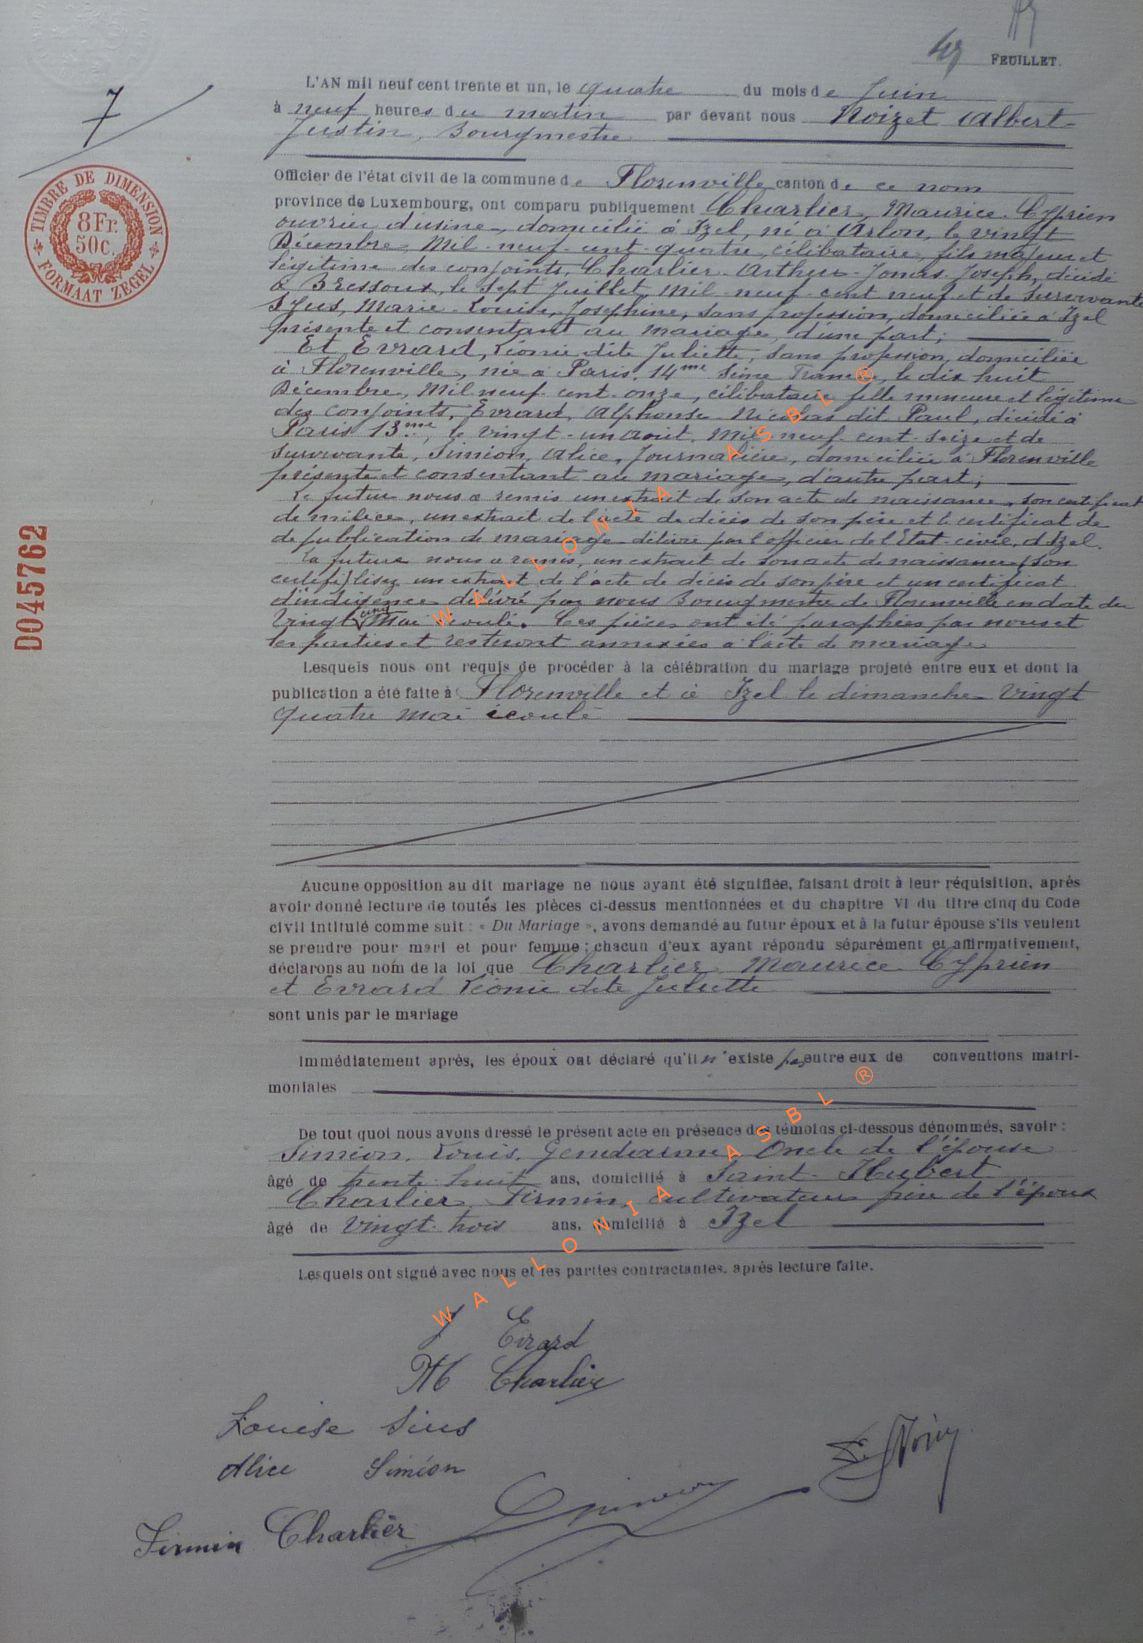 47 FEUILLET.
7
L'AN mil neuf cent trente et un, le quatre du mois de Juin
à neuf heures du matin par devant nous Noizet Albert
Justin, Bourgmestre
Officier de l'état civil de la commune de Florenville canton de ce nom
TIMBRE DE DIMENSION
8Fr.
50c.
FORMAAT ZEGEL
province de Luxembourg, ont comparu publiquement Charlier, Maurice Cyprien
ouvrier d'usine, domicilié à Izel, né à Arlon, le vingt
Décembre, Mil-neuf-cent-quatre, célibataire, fils majeur et
légitime des conjoints, Charlier Arthur-Jonas-Joseph, décédé
à Bressoux, le sept Juillet, Mil-neuf-cent neuf et de Survivante
Sjus, Marie-Louise, Joséphine, sans profession, domiciliée à Izel
présente et consentant au mariage, d'une part;
Et Evrard, Léonie dite Juliette, sans profession, domiciliée
à Florenville, née à Paris, 14me Seine France, le dix huit
Décembre, Mil neuf cent-onze, célibataire, fille mineure et légitime
des conjoints, Evrard, Alphonse Nicolas dit Paul, décédé à
Paris 13me, le vingt-un août, Mil neuf-cent-seize et de
Survivante, Siméon, Alice, Journalière, domiciliée à Florenville
présente et consentant au mariage, d'autre part;
Le futur nous a remis un extrait de son acte de naissance, son certificat
de milice, un extrait de l'acte de décès de son père et le certificat de
de publication de mariage délivré par l'officier de l'Etat-civil, d'Izel.
La future nous a remis, un extrait de son acte de naissance (son
certifi) lisez un extrait de l'acte de décès de son père et un certificat
d'indigence délivré par nous Bourgmestre de Florenville en date du
vingt cinq Mai écoulé. Ces pièces ont été paraphées par nous et
les parties et resteront annexées à l'acte de mariage
D045762
Lesquels nous ont requis de procéder à la célébration du mariage projeté entre eux et dont la
publication a été faite à Florenville et à Izel le dimanche vingt
quatre mai écoulé
WALLONIA ASBL ®
Aucune opposition au dit mariage ne nous ayant été signifiée, faisant droit à leur réquisition, après
avoir donné lecture de toutes les pièces ci-dessus mentionnées et du chapitre VI du titre cinq du Code
civil intitulé comme suit : « Du Mariage », avons demandé au futur époux et à la futur épouse s'ils veulent
se prendre pour mari et pour femme ; chacun d'eux ayant répondu séparément et affirmativement,
déclarons au nom de la loi que Charlier Maurice Cyprien
et Evrard Léonie dite Juliette
sont unis par le mariage
Immédiatement après, les époux ont déclaré qu'il n'existe pas entre eux de conventions matri-
moniales
De tout quoi nous avons dressé le présent acte en présence des témoins ci-dessous dénommés, savoir :
Siméon, Louis, Gendarme, Oncle de l'épouse
âgé de trente huit ans, domicilié à Saint-Hubert
Charlier Firmin, cultivateur frère de l'époux
âgé de vingt-trois ans, domicilié à Izel
Lesquels ont signé avec nous et les parties contractantes, après lecture faite.
WALLONIA ASBL ®
J Evrard
M Charlier
Louise Sius
Alice Siméon
Firmin Charlier